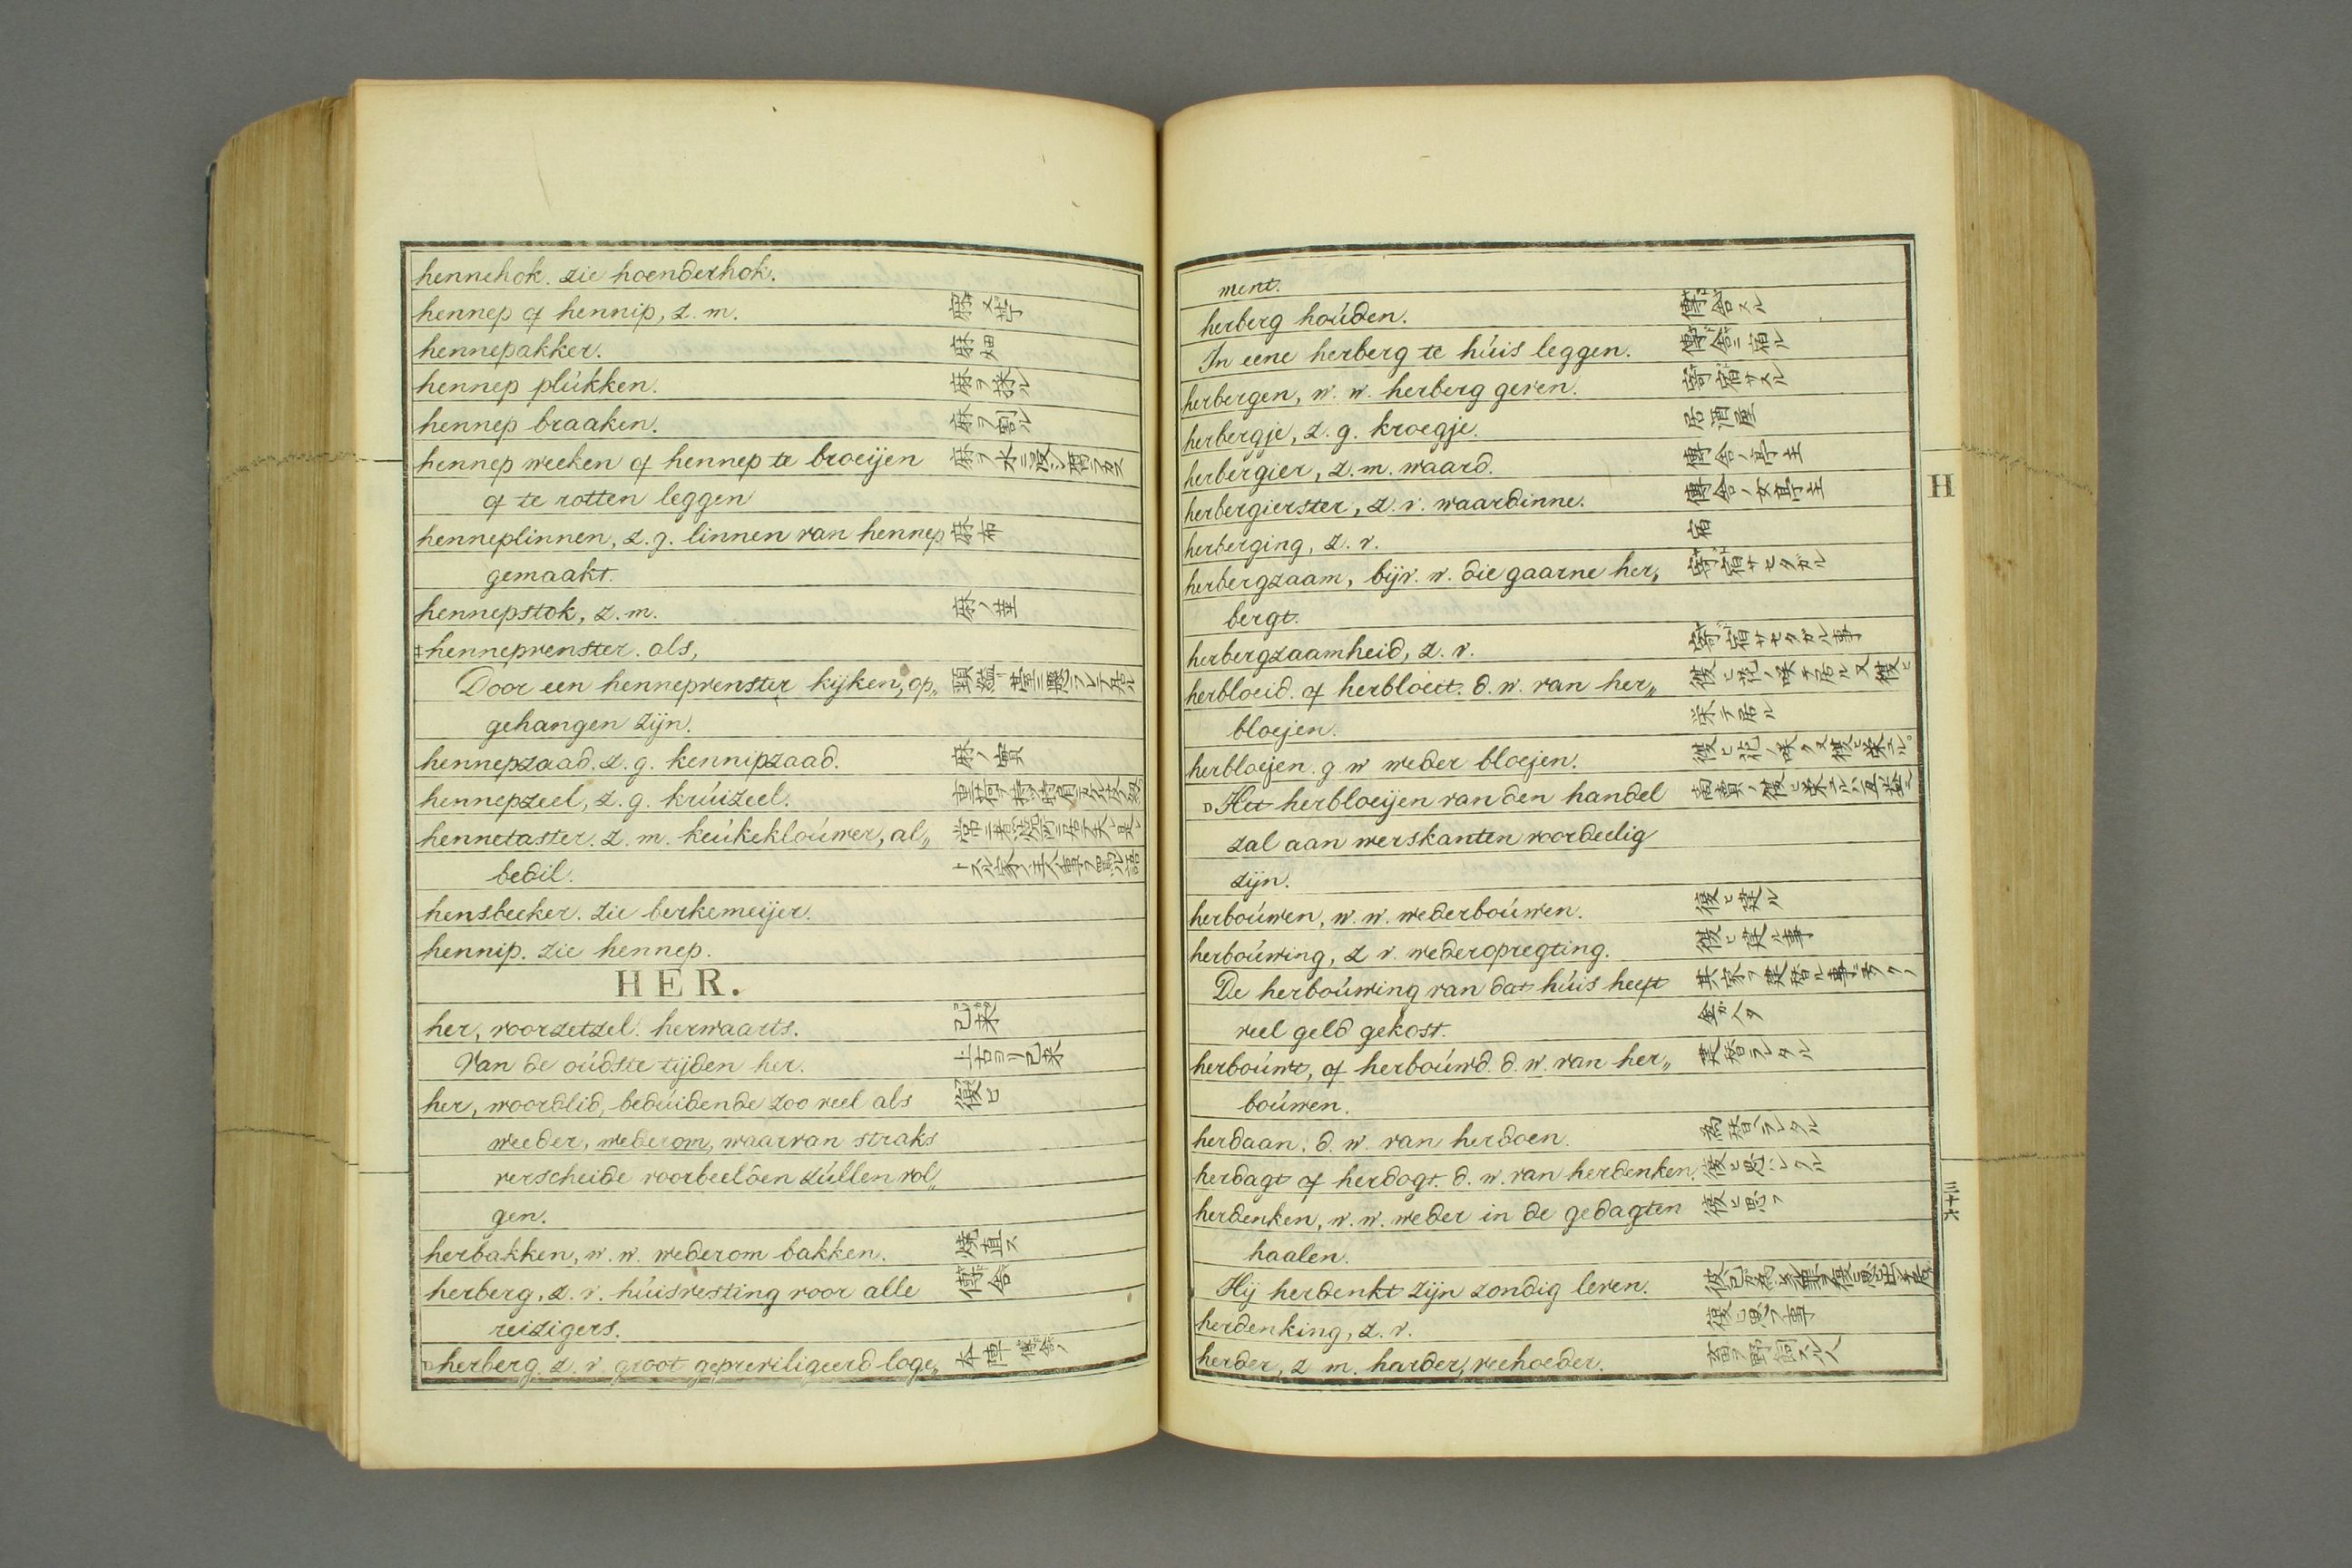 hennehok. zie hoenderhok.
hennep of hennip, z. m. 麻 又 苧
hennepakker. 麻畑
hennep plúkken. 麻ヲ採ル
hennep braaken. 麻ヲ割ル
hennep weeken of hennep te broeijen 麻ヲ水ニ浸シ腐ラカス
of te rotten leggen
henneplinnen, z. g. linnen van hennep 麻布
gemaakt.
hennepstok, z. m. 麻ノ莖
‡hennepvenster. als,
Door een hennepvenster kijken, op„
gehangen zijn.
hennepzaad. z. g. kennipzaad. 麻ノ實
hennepzeel, z. g. krúizeel.
hennetaster. z. m. keúkekloúwer, al„
bedil.
hensbeeker. zie berkemeijer.
hennip. zie hennep.
HER.
her, voorzetzel. herwaarts. 己来
Van de oúdste tijden her. 上古ヨリ己来
her, woordlid, bedúidende zoo veel als 復ヒ
weeder, wederom, waarvan straks
verscheide voorbeelden zúllen vol„
gen.
herbakken, w. w. wederom bakken. 焼直ス
herberg, z. v. húisvesting voor alle 傳舎
reizigers.
herberg. z. v. groot gepreviligeerd loge„ 本陣 傳舎ノ
ment.
herberg hoúden. 傳舎スル
In eene herberg te húis leggen. 傳舎ニ宿ル
herbergen, w. w. herberg geven. 寄宿サスル
herbergje, z. g. kroegje. 居酒屋
herbergier, z. m. waard. 傳舎ノ亭主
herbergierster, z. v. waardinne. 傳舎ノ女亭主
herberging, z. v. 宿
herbergzaam, bijv. w. die gaarne her„ 寄宿サセタガル
bergt.
herbergzaamheid, z. v. 寄宿サセタガル事
herbloeid. of herbloeit. d. w. van her„ 復ヒ花ノ咲テ居ル又復ヒ
bloejen. 栄テ居ル
herbloejen. g. w weder bloejen. 復ヒ花ノ咲ク又復ヒ栄エル。
Het herbloeijen van den handel
zal aan werskanten voordeelig
zijn.
herboúwen, w. w. wederboúwen. 復ヒ建ル
herboúwing, z v. wederopregting. 復ヒ建ル事
De herboúwing van dat húis heeft
veel geld gekost.
herboúwt, of herboúwd. d. w. van her„ 建替ラレタル
boúwen.
herdaan. d. w. van herdoen. 為替ラレタル
herdagt of herdogt. d. w. van herdenken. 復ヒ思ハレタル
herdenken, w. w. weder in de gedagten 復ヒ思フ
haalen.
Hij herdenkt zijn zondig leven.
herdenking, z. v. 復ヒ思フ事
herder, z m. harder, veehoeder. 畜ヲ野飼スル人
H
三十六